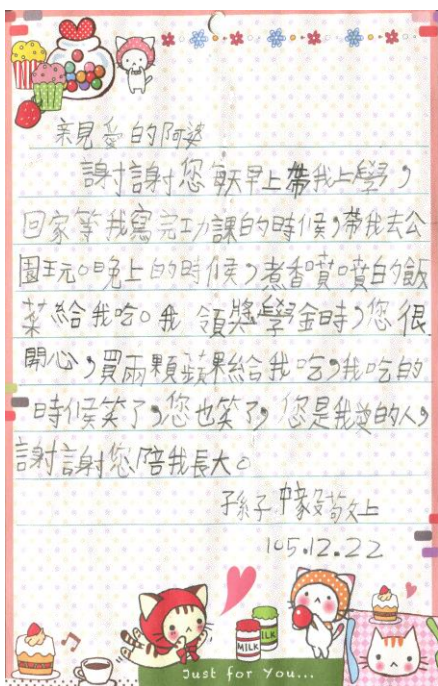 親愛的阿婆
謝謝您每天早上帶我上學，
回家等我寫完功課的時候，帶我去公
園玩。晚上的時候，煮香噴噴的飯
菜給我吃。我領獎學金時，您很
開心，買兩顆蘋果給我吃，我吃的
時候笑了，您也笑了，您是我愛的人，
謝謝您陪我長大。
孫子 敬上
105.12.22
MILK
MILK
Just for You...